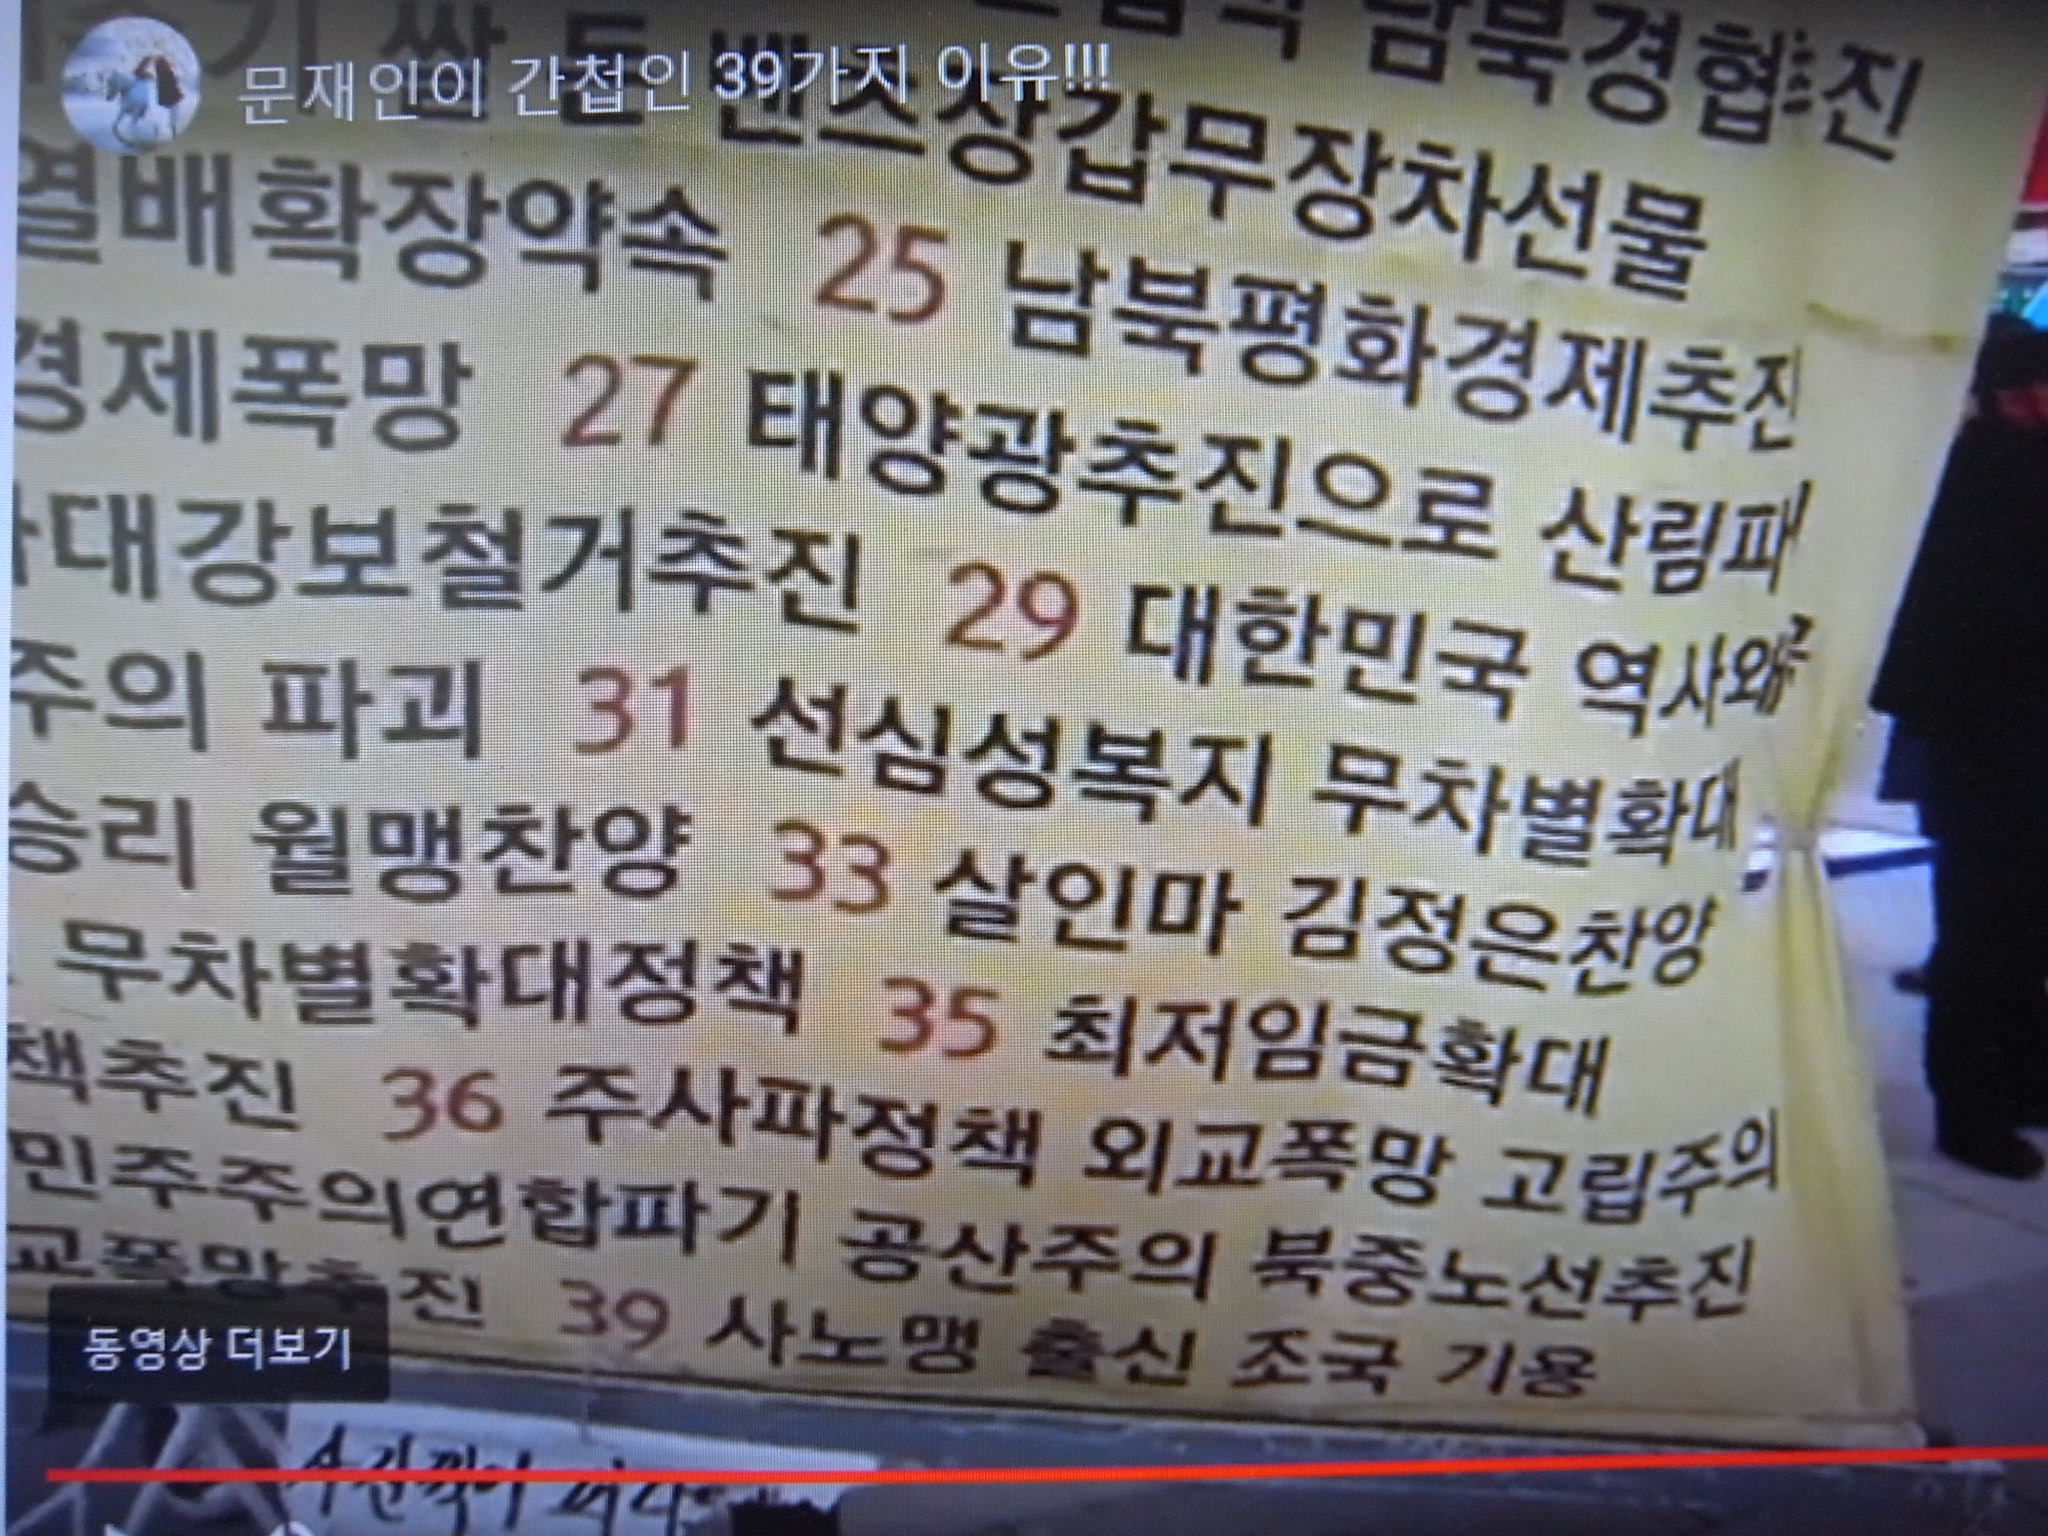 문재인이 간첩인 39가지 이유!!!
남북경협 진
벤스상갑무장차선물
배확장약속 25 남북평화경제추진
경제폭망 27 태양광추진으로 산림파
대강보철거추진 29 대한민국 역사왜
주의 파괴 31 선심성복지 무차별확대
승리 월맹찬양 33 살인마 김정은찬양
무차별확대정책 35 최저임금확대
책추진 36 주사파정책 외교폭망 고립주의
민주주의연합파기 공산주의 북중노선추진
교폭망추진 39 사노맹 출신 조국 기용
동영상 더보기